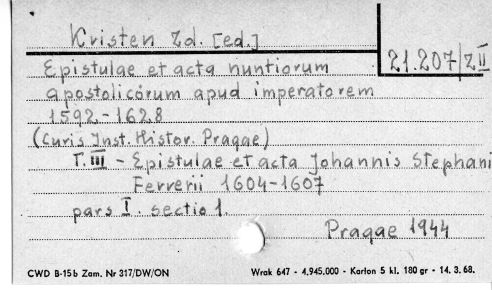 Kristen Zd. [ed.]
21.207/Z II
Epistulae et acta nuntiorum
apostolicorum apud imperatorem
1592-1628
(Curis Inst. Histor. Pragae)
T. III - Epistulae et acta Johannis Stephani
Ferrerii 1604-1607
pars I. sectio 1.
Pragae 1944
CWD B-15b Zam. Nr 317/DW/ON
Wrak 647 - 4,945.000 - Karton 5 kl. 180 gr - 14. 3. 68.